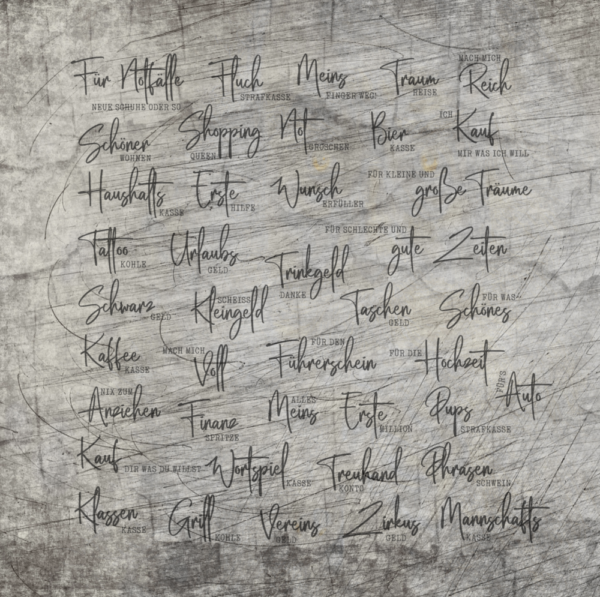 Für Notfälle NEUE SCHUHE ODER SO
Fluch STRAFKASSE
Meins FINGER WEG!
Traum REISE
MACH MICH Reich
Schöner WOHNEN
Shopping QUEEN
Not GROSCHEN
Bier KASSE
ICH Kauf MIR WAS ICH WILL
Haushalts KASSE
Erste HILFE
Wunsch ERFÜLLER
FÜR KLEINE UND große Träume
Tattoo KOHLE
Urlaubs GELD
Trinkgeld DANKE
FÜR SCHLECHTE UND gute Zeiten
Schwarz GELD
SCHEISS Kleingeld
Taschen GELD
FÜR WAS Schönes
Kaffee KASSE
MACH MICH Voll
FÜR DEN Führerschein
FÜR DIE Hochzeit
FÜRS Auto
NIX ZUM Anziehen
Finanz SPRITZE
ALLES Meins
Erste BILLION
Pups STRAFKASSE
Kauf DIR WAS DU WILLST
Wortspiel KASSE
Treuhand KONTO
Phrasen SCHWEIN
Klassen KASSE
Grill KOHLE
Vereins GELD
Zirkus GELD
Mannschafts KASSE